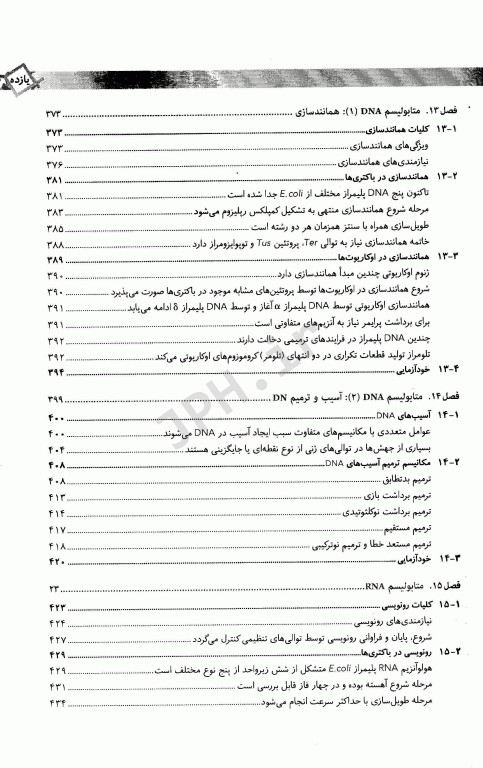 یازده
فصل ۱۳. متابولیسم DNA (۱): همانندسازی ۳۷۳
۱۳-۱ کلیات همانندسازی ۳۷۳
ویژگی‌های همانندسازی ۳۷۳
نیازمندی‌های همانندسازی ۳۷۶
۱۳-۲ همانندسازی در باکتری‌ها ۳۸۱
تاکنون پنج DNA پلیمراز مختلف از E.coli جدا شده است ۳۸۱
مرحله شروع همانندسازی منتهی به تشکیل کمپلکس رپلیزوم می‌شود ۳۸۳
طویل‌سازی همراه با سنتز همزمان هر دو رشته است ۳۸۵
خاتمه همانندسازی نیاز به توالی Ter، پروتئین Tus و توپوایزومراز دارد ۳۸۸
۱۳-۳ همانندسازی در اوکاریوت‌ها ۳۸۹
ژنوم اوکاریوتی چندین مبدأ همانندسازی دارد ۳۹۰
شروع همانندسازی در اوکاریوت‌ها توسط پروتئین‌های مشابه موجود در باکتری‌ها صورت می‌پذیرد ۳۹۰
همانندسازی اوکاریوتی توسط DNA پلیمراز α آغاز و توسط DNA پلیمراز δ ادامه می‌یابد ۳۹۱
برای برداشت پرایمر نیاز به آنزیم‌های متفاوتی است ۳۹۱
چندین DNA پلیمراز در فرایندهای ترمیمی دخالت دارند ۳۹۲
تلومراز تولید قطعات تکراری در دو انتهای (تلومر) کروموزوم‌های اوکاریوتی می‌کند ۳۹۲
۱۳-۴ خودآزمایی ۳۹۴
فصل ۱۴. متابولیسم DNA (۲): آسیب و ترمیم DN ۳۹۹
۱۴-۱ آسیب‌های DNA ۴۰۰
عوامل متعددی با مکانیسم‌های متفاوت سبب ایجاد آسیب در DNA می‌شوند ۴۰۰
بسیاری از جهش‌ها در توالی‌های ژنی از نوع نقطه‌ای یا جایگزینی هستند ۴۰۴
۱۴-۲ مکانیسم ترمیم آسیب‌های DNA ۴۰۸
ترمیم بدتطابق ۴۰۸
ترمیم برداشت بازی ۴۱۳
ترمیم برداشت نوکلئوتیدی ۴۱۴
ترمیم مستقیم ۴۱۷
ترمیم مستعد خطا و ترمیم نوترکیبی ۴۱۸
۱۴-۳ خودآزمایی ۴۲۰
فصل ۱۵. متابولیسم RNA ۲۳
۱۵-۱ کلیات رونویسی ۴۲۳
نیازمندی‌های رونویسی ۴۲۴
شروع، پایان و فراوانی رونویسی توسط توالی‌های تنظیمی کنترل می‌گردد ۴۲۷
۱۵-۲ رونویسی در باکتری‌ها ۴۲۹
هولوآنزیم RNA پلیمراز E.coli متشکل از شش زیرواحد از پنج نوع مختلف است ۴۲۹
مرحله شروع آهسته بوده و در چهار فاز قابل بررسی است ۴۳۱
مرحله طویل‌سازی با حداکثر سرعت انجام می‌شود ۴۳۴
JPH.ir